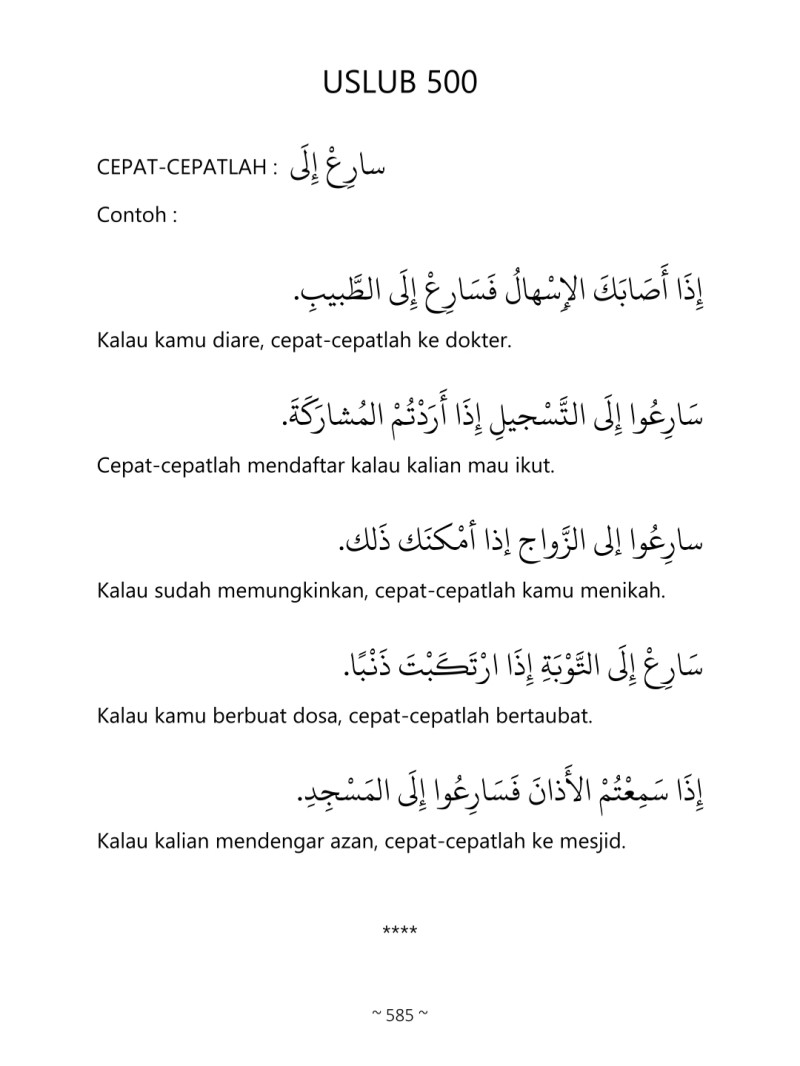 USLUB 500
CEPAT-CEPATLAH : سارِعْ إِلَى
Contoh :
إِذَا أَصَابَكَ الإِسْهالُ فَسَارِعْ إِلَى الطَّبيبِ.
Kalau kamu diare, cepat-cepatlah ke dokter.
سَارِعُوا إِلَى التَّسْجيلِ إِذَا أَرَدْتُمْ المُشارَكَةَ.
Cepat-cepatlah mendaftar kalau kalian mau ikut.
سارِعُوا إلى الزَّواج إذا أمْكنَك ذَلك.
Kalau sudah memungkinkan, cepat-cepatlah kamu menikah.
سَارِعْ إِلَى التَّوْبَةِ إِذَا ارْتَكَبْتَ ذَنْبًا.
Kalau kamu berbuat dosa, cepat-cepatlah bertaubat.
إِذَا سَمِعْتُمْ الأَذانَ فَسَارِعُوا إِلَى المَسْجِدِ.
Kalau kalian mendengar azan, cepat-cepatlah ke mesjid.
****
~ 585 ~